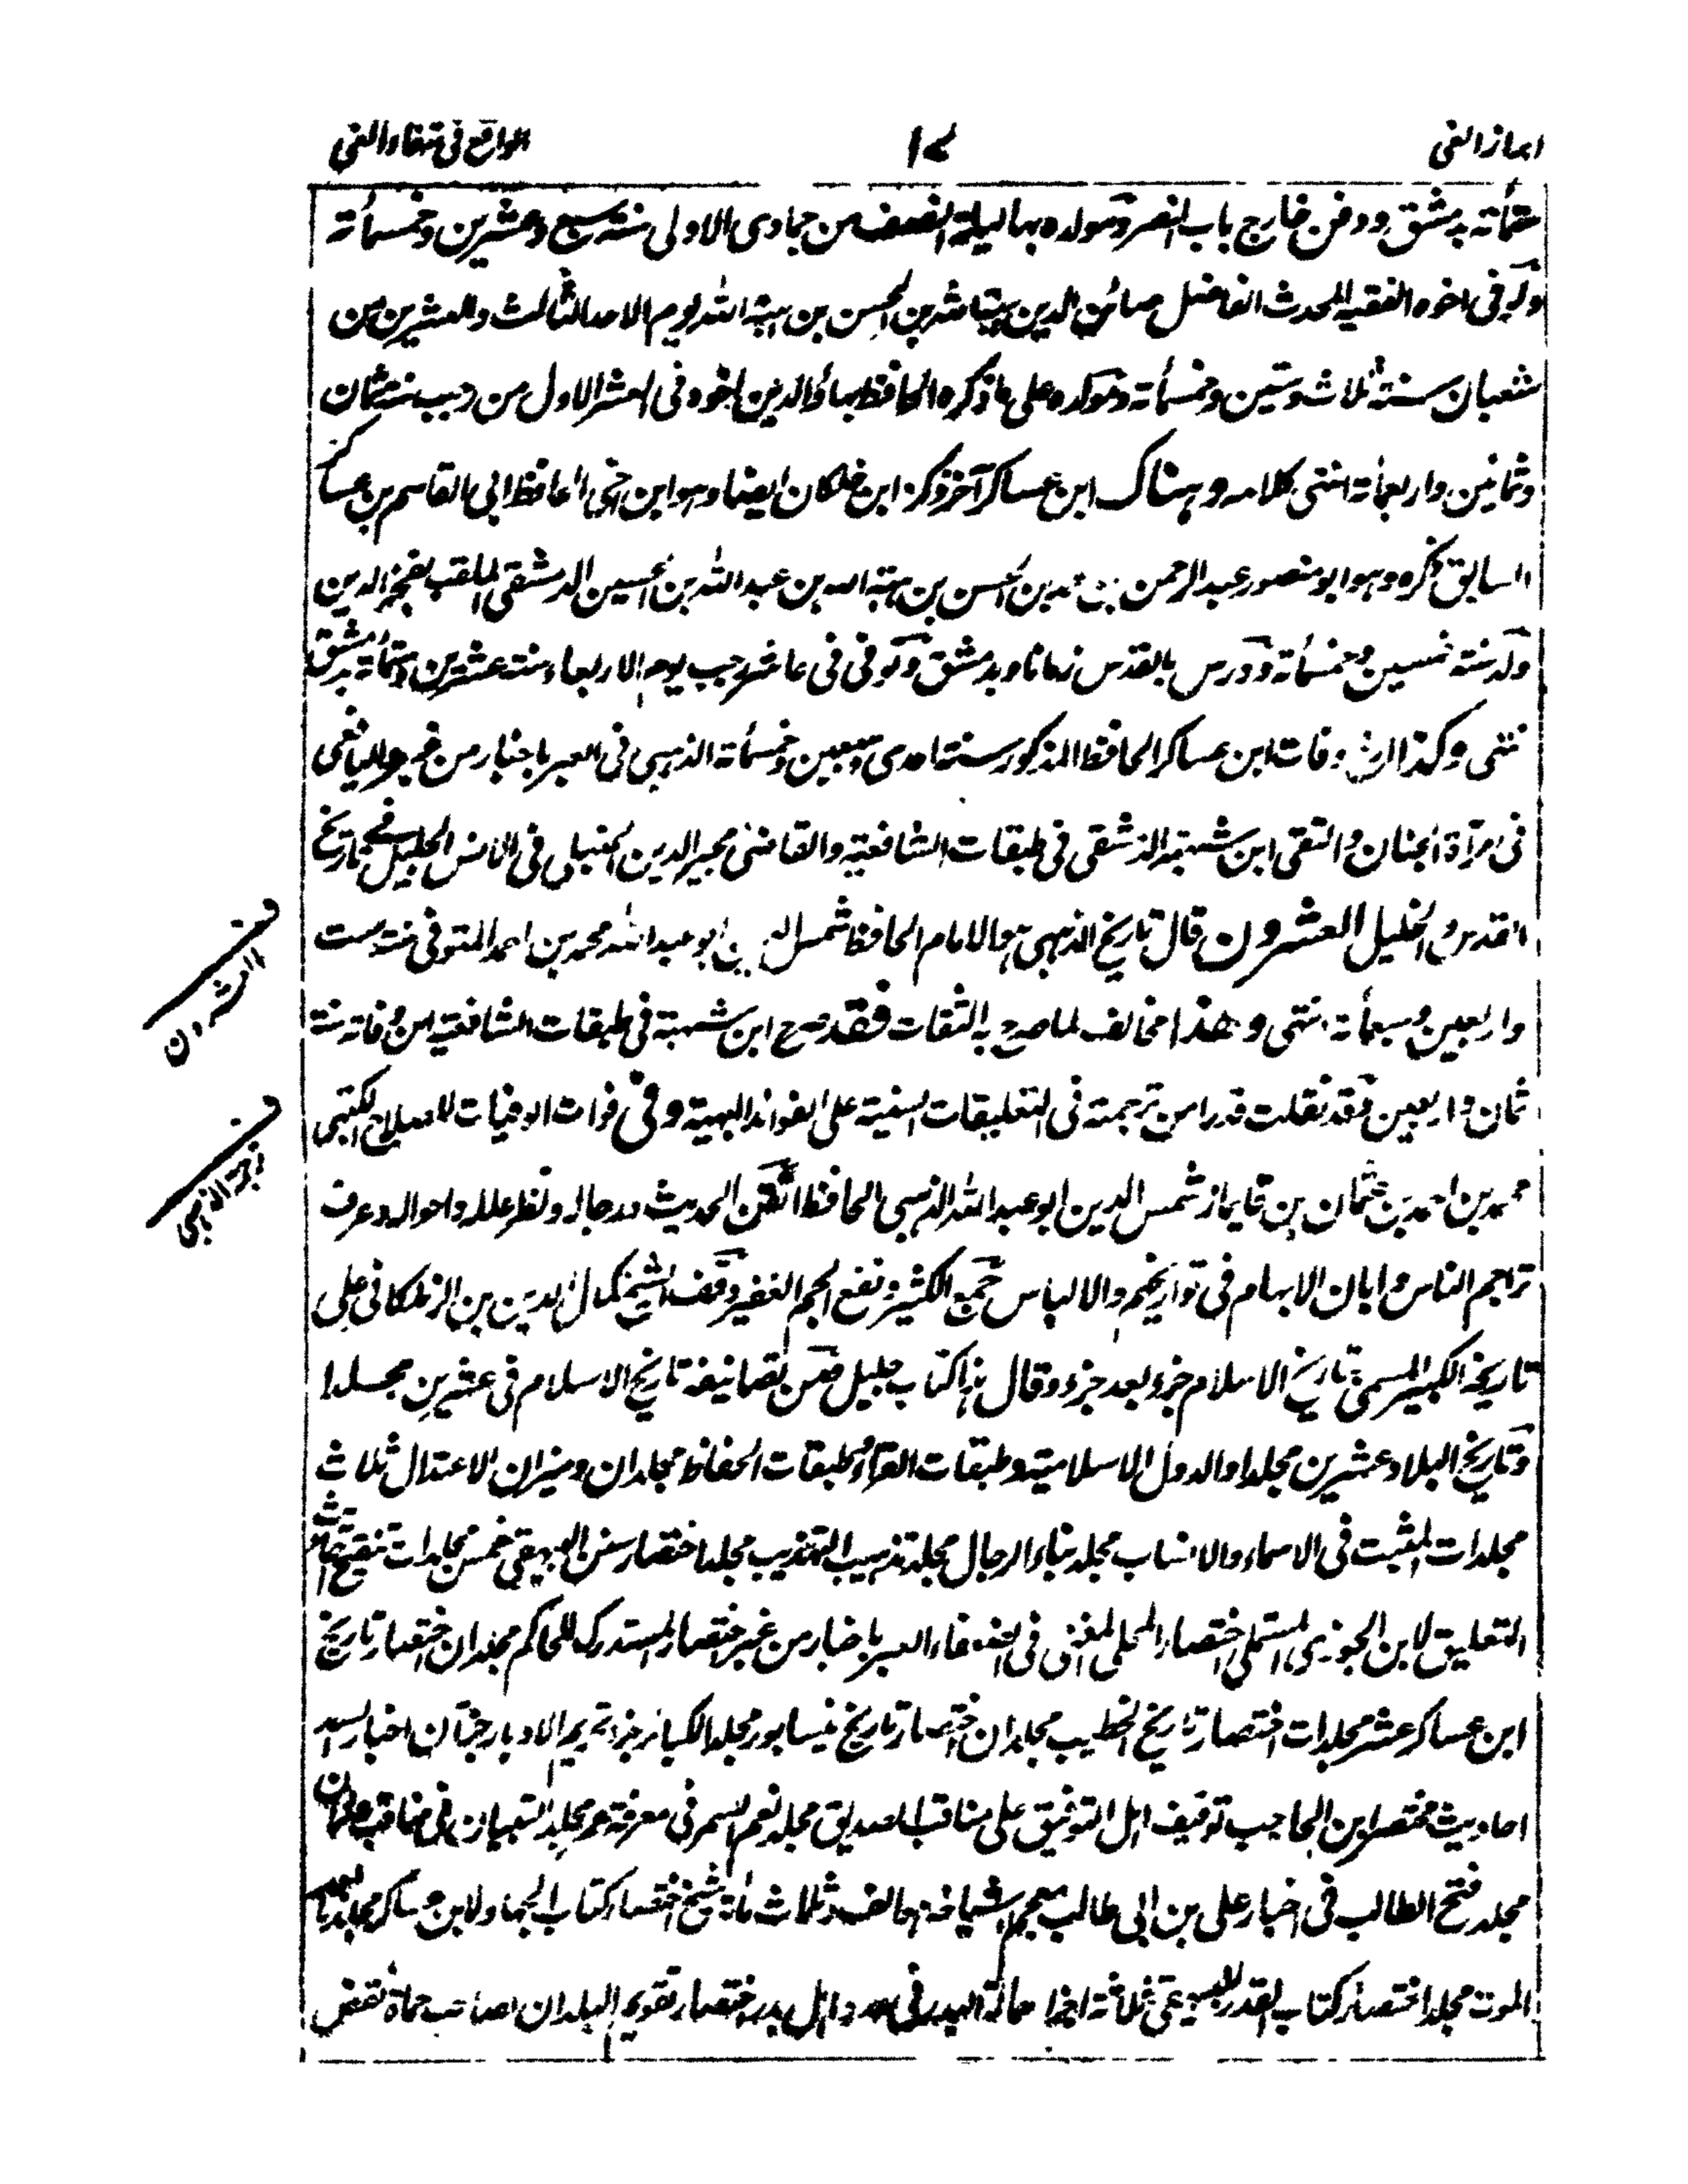 ابراز الغي ١٧ الواقع في شفاء العي
ستمأته بدمشق ودفن خارج باب النصر ومولده بها ليلة النصف من جمادى الاولى سنة سبع وعشرين وخمسمأته
وتوفى اخوه الفقيه المحدث الفاضل صائن الدين هبة الله بن الحسن بن هبة الله يوم الاحد الثالث والعشرين من
شعبان سنة ثلاث وستين وخمسمأته ومولده على ما ذكره الحافظ بهاء الدين اخوه فى العشر الاول من رجب سنة ثمان
وثمانين واربعمأته انتهى كلامه وهناك ابن عساكر آخر ذكره ابن خلكان ايضا وهو ابن اخى الحافظ ابى القاسم بن عساكر
السابق ذكره وهو ابو منصور عبد الرحمن بن محمد بن الحسن بن هبة الله بن عبد الله بن الحسين الدمشقى الملقب بفخر الدين
ولد سنة خمسين وخمسمأته ودرس بالقدس زمانا وبدمشق وتوفى فى عاشر رجب يوم الاربعاء سنة عشرين وستمأته بدمشق
انتهى وكذا ارخ وفات ابن عساكر الحافظ المذكور سنة احدى وسبعين وخمسمأته الذهبى فى العبر باخبار من غبر واليافعى
فى مرآة الجنان والتقى ابن شهبة الدمشقى فى طبقات الشافعية والقاضى مجير الدين الحنبلى فى الانس الجليل فى تاريخ
القدس والخليل العشرون قال تاريخ الذهبى هو الامام الحافظ شمس الدين ابو عبد الله محمد بن احمد المتوفى سنة ست
واربعين وسبعمأته انتهى وهذا مخالف لما صرح به الثقات فقد صرح ابن شهبة فى طبقات الشافعية ان وفاته سنة
ثمان واربعين وقد نقلت قدرا من ترجمته فى التعليقات السنية على الفوائد البهية وفى فوات الوفيات للصلاح الكتبى
محمد بن احمد بن عثمان بن قايماز شمس الدين ابو عبد الله الذهبى الحافظ اتقن الحديث ورجاله ونظر علله واحواله وعرف
تراجم الناس وابان الابهام فى تواريخهم والالباس جمع الكثير ونفع الجم الغفير وقف الشيخ كمال الدين بن الزملكانى على
تاريخه الكبير المسمى تاريخ الاسلام جزء بعد جزء وقال هذا كتاب جليل ومن تصانيفه تاريخ الاسلام فى عشرين مجلدا
وتاريخ البلاد عشرين مجلدا والدول الاسلامية وطبقات القراء وطبقات الحفاظ مجلدان وميزان الاعتدال ثلاث
مجلدات المثبت فى الاسماء والانساب مجلد نباء الرجال مجلد تذهيب التهذيب مجلد اختصار سنن البيهقى خمس مجلدات تنقيح احاديث
التعليق لابن الجوزى المستملى اختصار المحلى المغنى فى الضعفاء العبر باخبار من غبر اختصار المستدرك للحاكم مجلدان اختصار تاريخ
ابن عساكر عشر مجلدات اختصار تاريخ الخطيب مجلدان اختصار تاريخ نيسابور مجلد الكبائر جزء تحريم الادبار جزآن اخبار السد
احاديث مختصر ابن الحاجب توقيف اهل التوفيق على مناقب الصديق مجلد نعم السمر فى معرفة عمر مجلد التبيان فى مناقب عثمان
مجلد فتح الطالب فى اخبار على بن ابى طالب معجم اشياخه وهم الف وثلاث مأته شيخ اختصار كتاب الجهاد لابن عساكر مجلد ما بعد
الموت مجلد اختصار كتاب القدر للبيهقى ثلاثة اجزاء هالة البدر فى عدد اهل بدر اختصار تقويم البلدان لصاحب حماة نقض
العشرون
ترجمة الذهبى